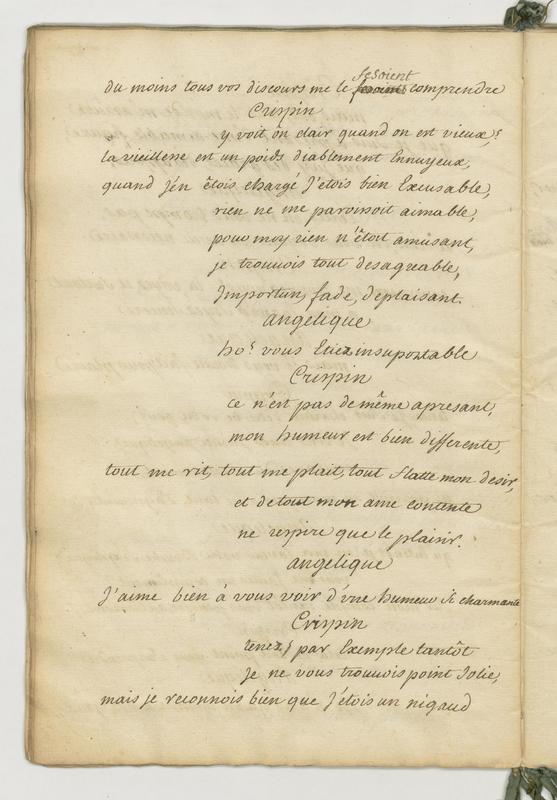 du moins tous vos discours me le fesoient comprendre
Crispin
y voit on clair quand on est vieux,
la vieillesse est un poids diablement Ennuyeux,
quand j'én êtois chargé J'etois bien Excusable,
rien ne me paroissoit aimable,
pour moy rien n'êtoit amusant,
je trouvois tout desagreable,
Importun, fade, deplaisant.
angelique
ho! vous Etiez insuportable
Crispin
ce n'est pas de même apresant,
mon humeur est bien differente,
tout me rit, tout me plait, tout flatte mon desir,
et de tout mon ame contente
ne respire que le plaisir.
angelique
J'aime bien à vous voir d'vne humeur si charmante
Crispin
tenez, par Exemple tantôt
Je ne vous trouvois point Jolie,
mais je reconnois bien que J'étois un nigaud